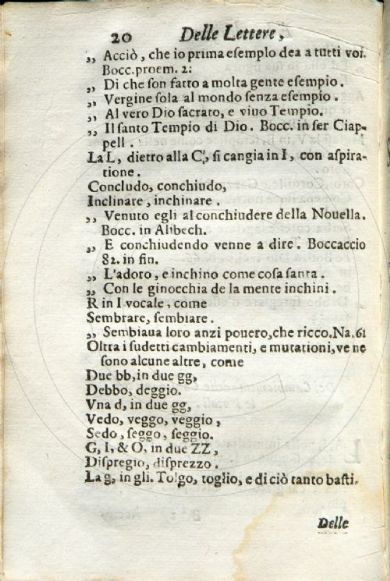 20 Delle Lettere,
„ Acciò, che io prima esemplo dea a tutti voi.
Bocc. proem. 2:
„ Di che son fatto a molta gente esempio.
„ Vergine sola al mondo senza esempio.
„ Al vero Dio sacrato, e viuo Tempio.
„ Il santo Tempio di Dio. Bocc. in ser Ciap-
pell.
La L, dietro alla C, si cangia in I, con aspira-
tione.
Concludo, conchiudo,
Inclinare, inchinare.
„ Venuto egli al conchiudere della Nouella.
Bocc. in Alibech.
„ E conchiudendo venne a dire. Boccaccio
82. in fin.
„ L'adoro, e inchino come cosa santa.
„ Con le ginocchia de la mente inchini.
R in I vocale. come
Sembrare, sembiare.
„ Sembiaua loro anzi pouero, che ricco. Na. 61
Oltra i sudetti cambiamenti, e mutationi, ve ne
sono alcune altre, come
Due bb, in due gg,
Debbo, deggio.
Vna d, in due gg,
Vedo, veggo, veggio,
Sedo, seggo, seggio.
G, I, & O, in due ZZ,
Dispregio, disprezzo.
La g, in gli. Tolgo, toglio, e di ciò tanto basti.
Delle